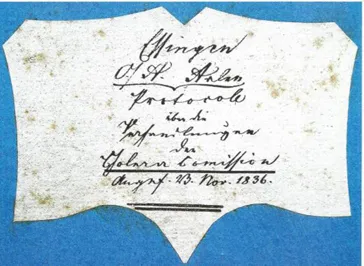 Essingen
O/A. Aalen
Protocole
über die
Verhandlungen
der
Cholera Comission
Angef. 23. Nov. 1836.